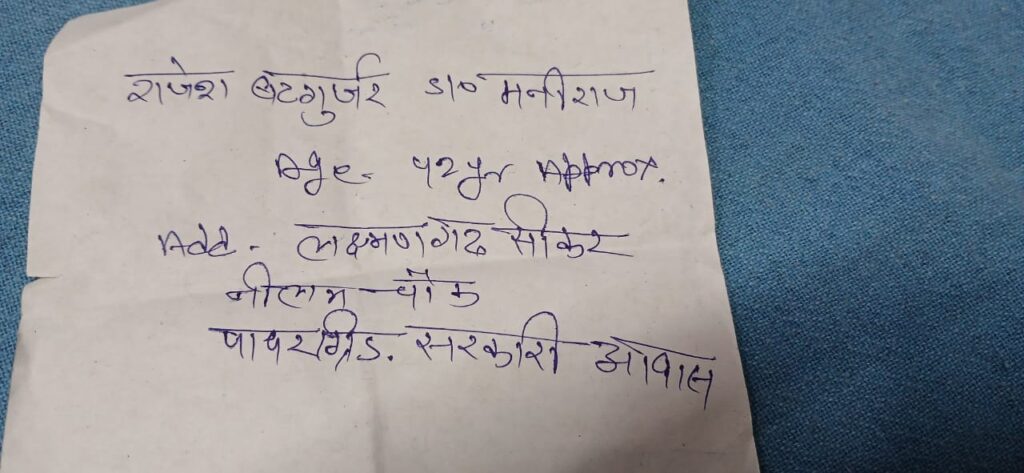 राजेश बटगुर्जर डा० मनीराज
Age. 42 yr Approx.
Add. लक्ष्मणगढ सीकर
नीलम चौक
पावरग्रिड. सरकारी आवास